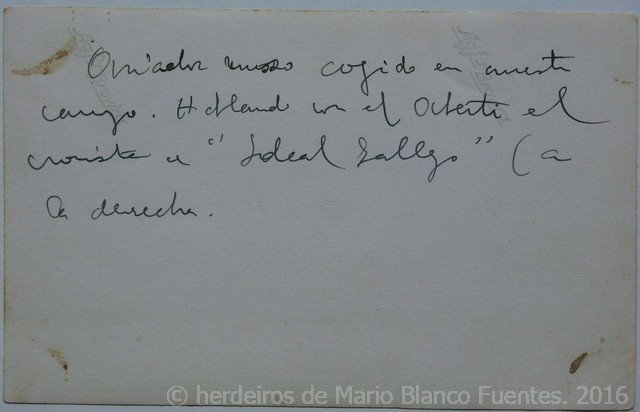 Aviador ruso cogido en nuestro
campo. Hablando con el el
cronista de "Ideal Gallego" (a
la derecha.
© herdeiros de Mario Blanco Fuentes. 2016